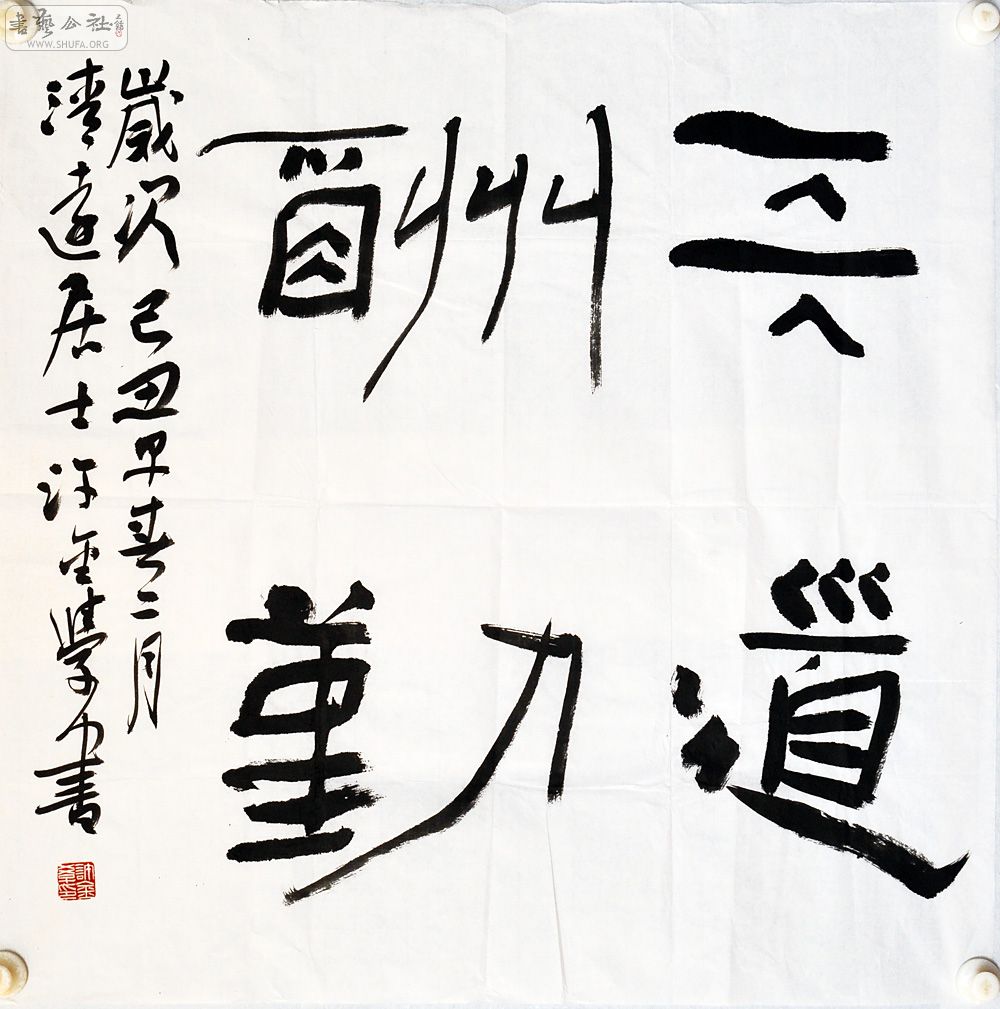 天道
酬勤
歲次己丑早春二月
清遠居士許金學書
書藝公社
WWW.SHUFA.ORG